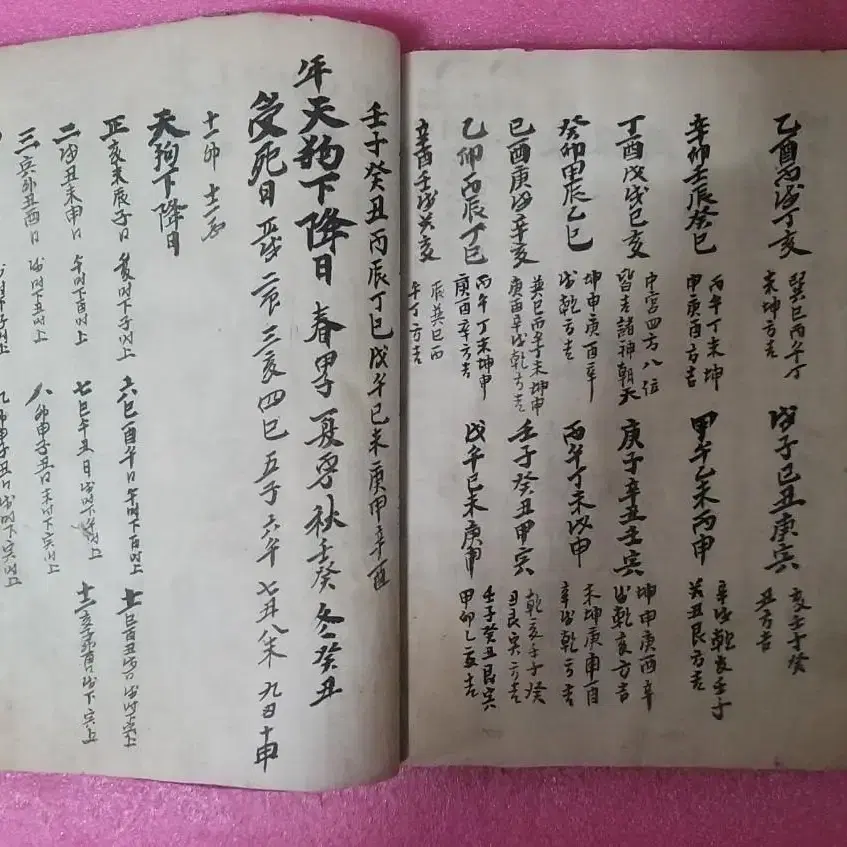 乙酉丙戌丁亥
巽巳丙午丁
未坤方吉
戊子己丑庚寅
亥壬子癸
丑方吉
辛卯壬辰癸巳
丙午丁未坤
申庚酉方吉
甲午乙未丙申
辛戌乾亥壬子
癸丑艮方吉
丁酉戊戌己亥
中宮四方八位
皆吉諸神朝天
庚子辛丑壬寅
坤申庚酉辛
戌乾亥方吉
癸卯甲辰乙巳
坤申庚酉辛
戌乾方吉
丙午丁未戊申
未坤庚申酉
辛戌乾方吉
己酉庚戌辛亥
巽巳丙午丁未坤申
庚酉辛戌乾方吉
壬子癸丑甲寅
乾亥壬子癸
丑艮寅方吉
乙卯丙辰丁巳
丙午丁未坤申
庚酉辛方吉
戊午己未庚申
壬子癸丑艮寅
甲卯乙方吉
辛酉壬戌癸亥
辰巽巳丙
午丁方吉
壬子癸丑丙辰丁巳戊午己未庚申辛酉
年天狗下降日 春 夏 秋壬癸 冬癸丑
受死日 正戌 二辰 三亥 四巳 五子 六午 七丑 八未 九 十申
十一卯 十二
天狗下降日
正亥未辰子日 亥時下子時上
六巳酉午日 午時下酉時上
二戌丑未申日
七巳午丑日
三寅卯丑酉日 戌時下丑時上
八卯申子丑日 未時下寅時上